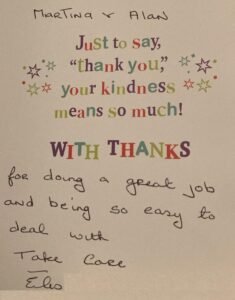 Martina & Alan
Just to say,
"thank you,"
your kindness
means so much!
WITH THANKS
for doing a great job
and being so easy to
deal with
Take Care